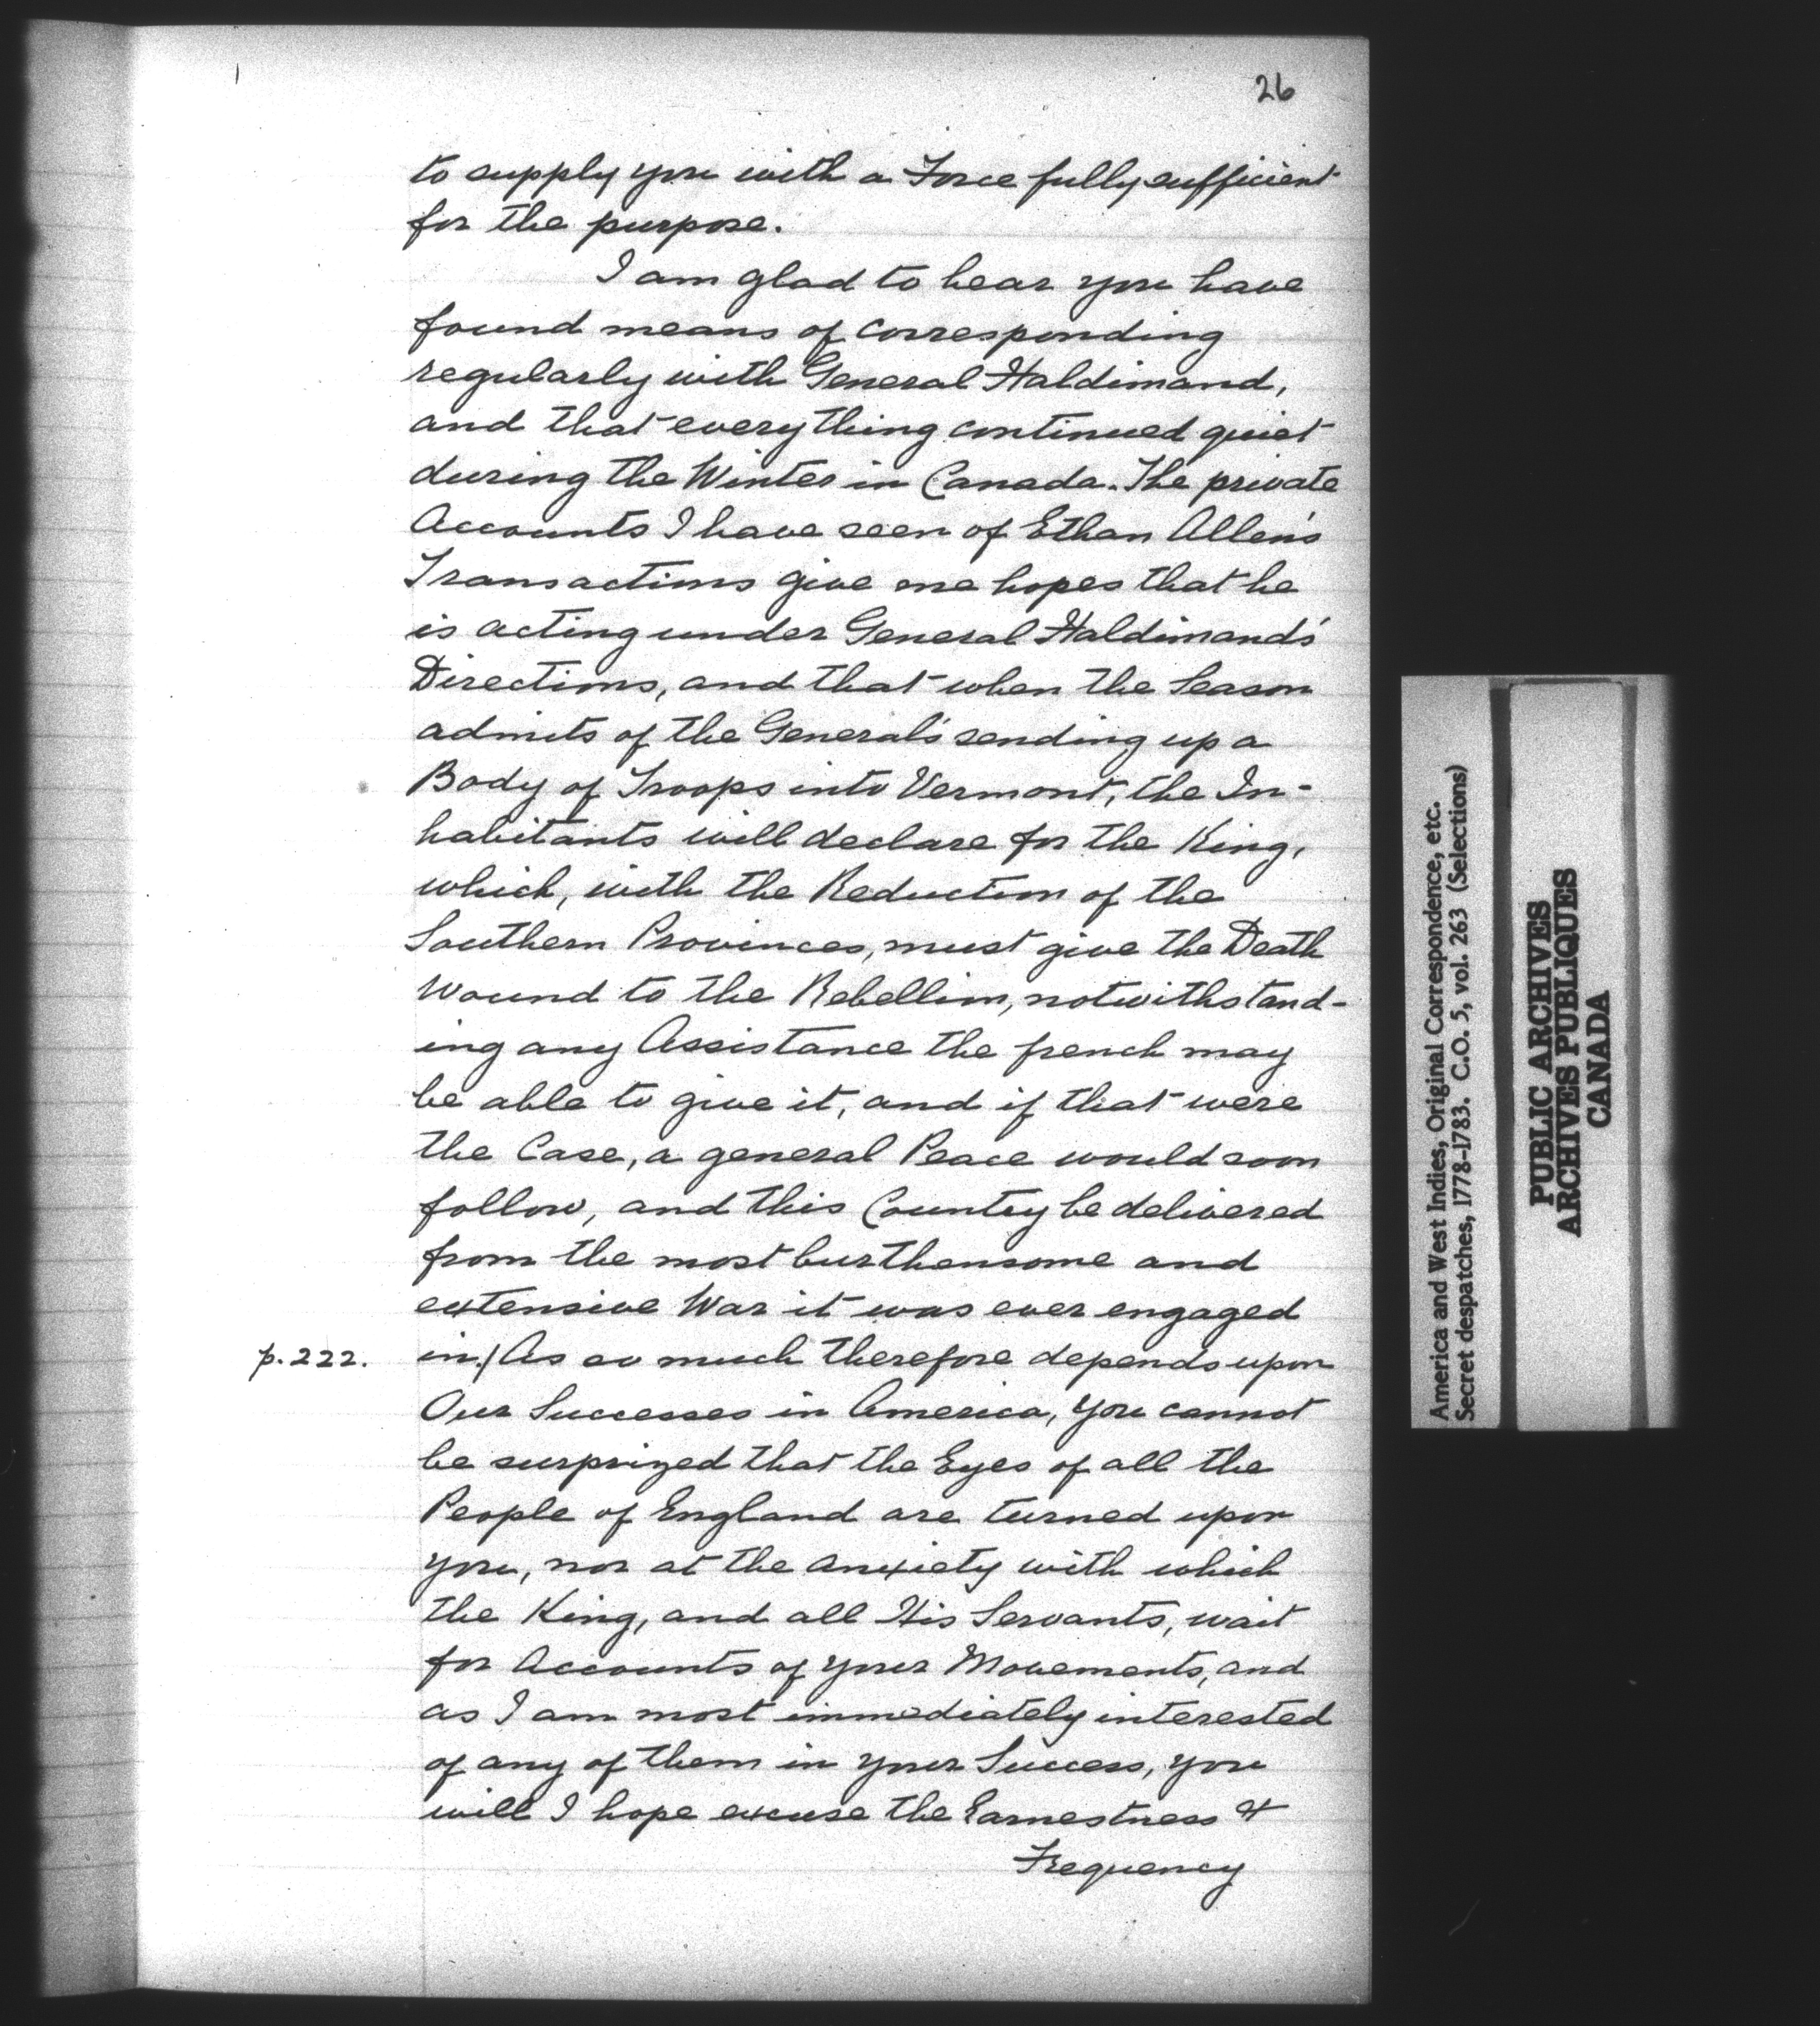 26
to supply you with a Force fully sufficient
for the purpose.
I am glad to hear you have
found means of corresponding
regularly with General Haldimand,
and that every thing continued quiet
during the Winter in Canada. The private
Accounts I have seen of Ethan Allen's
Transactions give me hopes that he
is acting under General Haldimand's
Directions, and that when the Season
admits of the General's sending up a
Body of Troops into Vermont, the In-
habitants will declare for the King,
which, with the Reduction of the
Southern Provinces, must give the Death
Wound to the Rebellion, notwithstand-
ing any Assistance the french may
be able to give it, and if that were
the Case, a general Peace would soon
follow, and this Country be delivered
from the most burthensome and
extensive War it was ever engaged
p. 222. in./ As so much therefore depends upon
Our Successes in America, you cannot
be surprized that the Eyes of all the
People of England are turned upon
you, nor at the anxiety with which
the King, and all His Servants, wait
for Accounts of your Movements, and
as I am most immediately interested
of any of them in your Success, you
will I hope excuse the Earnestness &
Frequency
America and West Indies, Original Correspondence, etc.
Secret despatches, 1778-1783. C.O. 5, vol. 263 (Selections)
PUBLIC ARCHIVES
ARCHIVES PUBLIQUES
CANADA